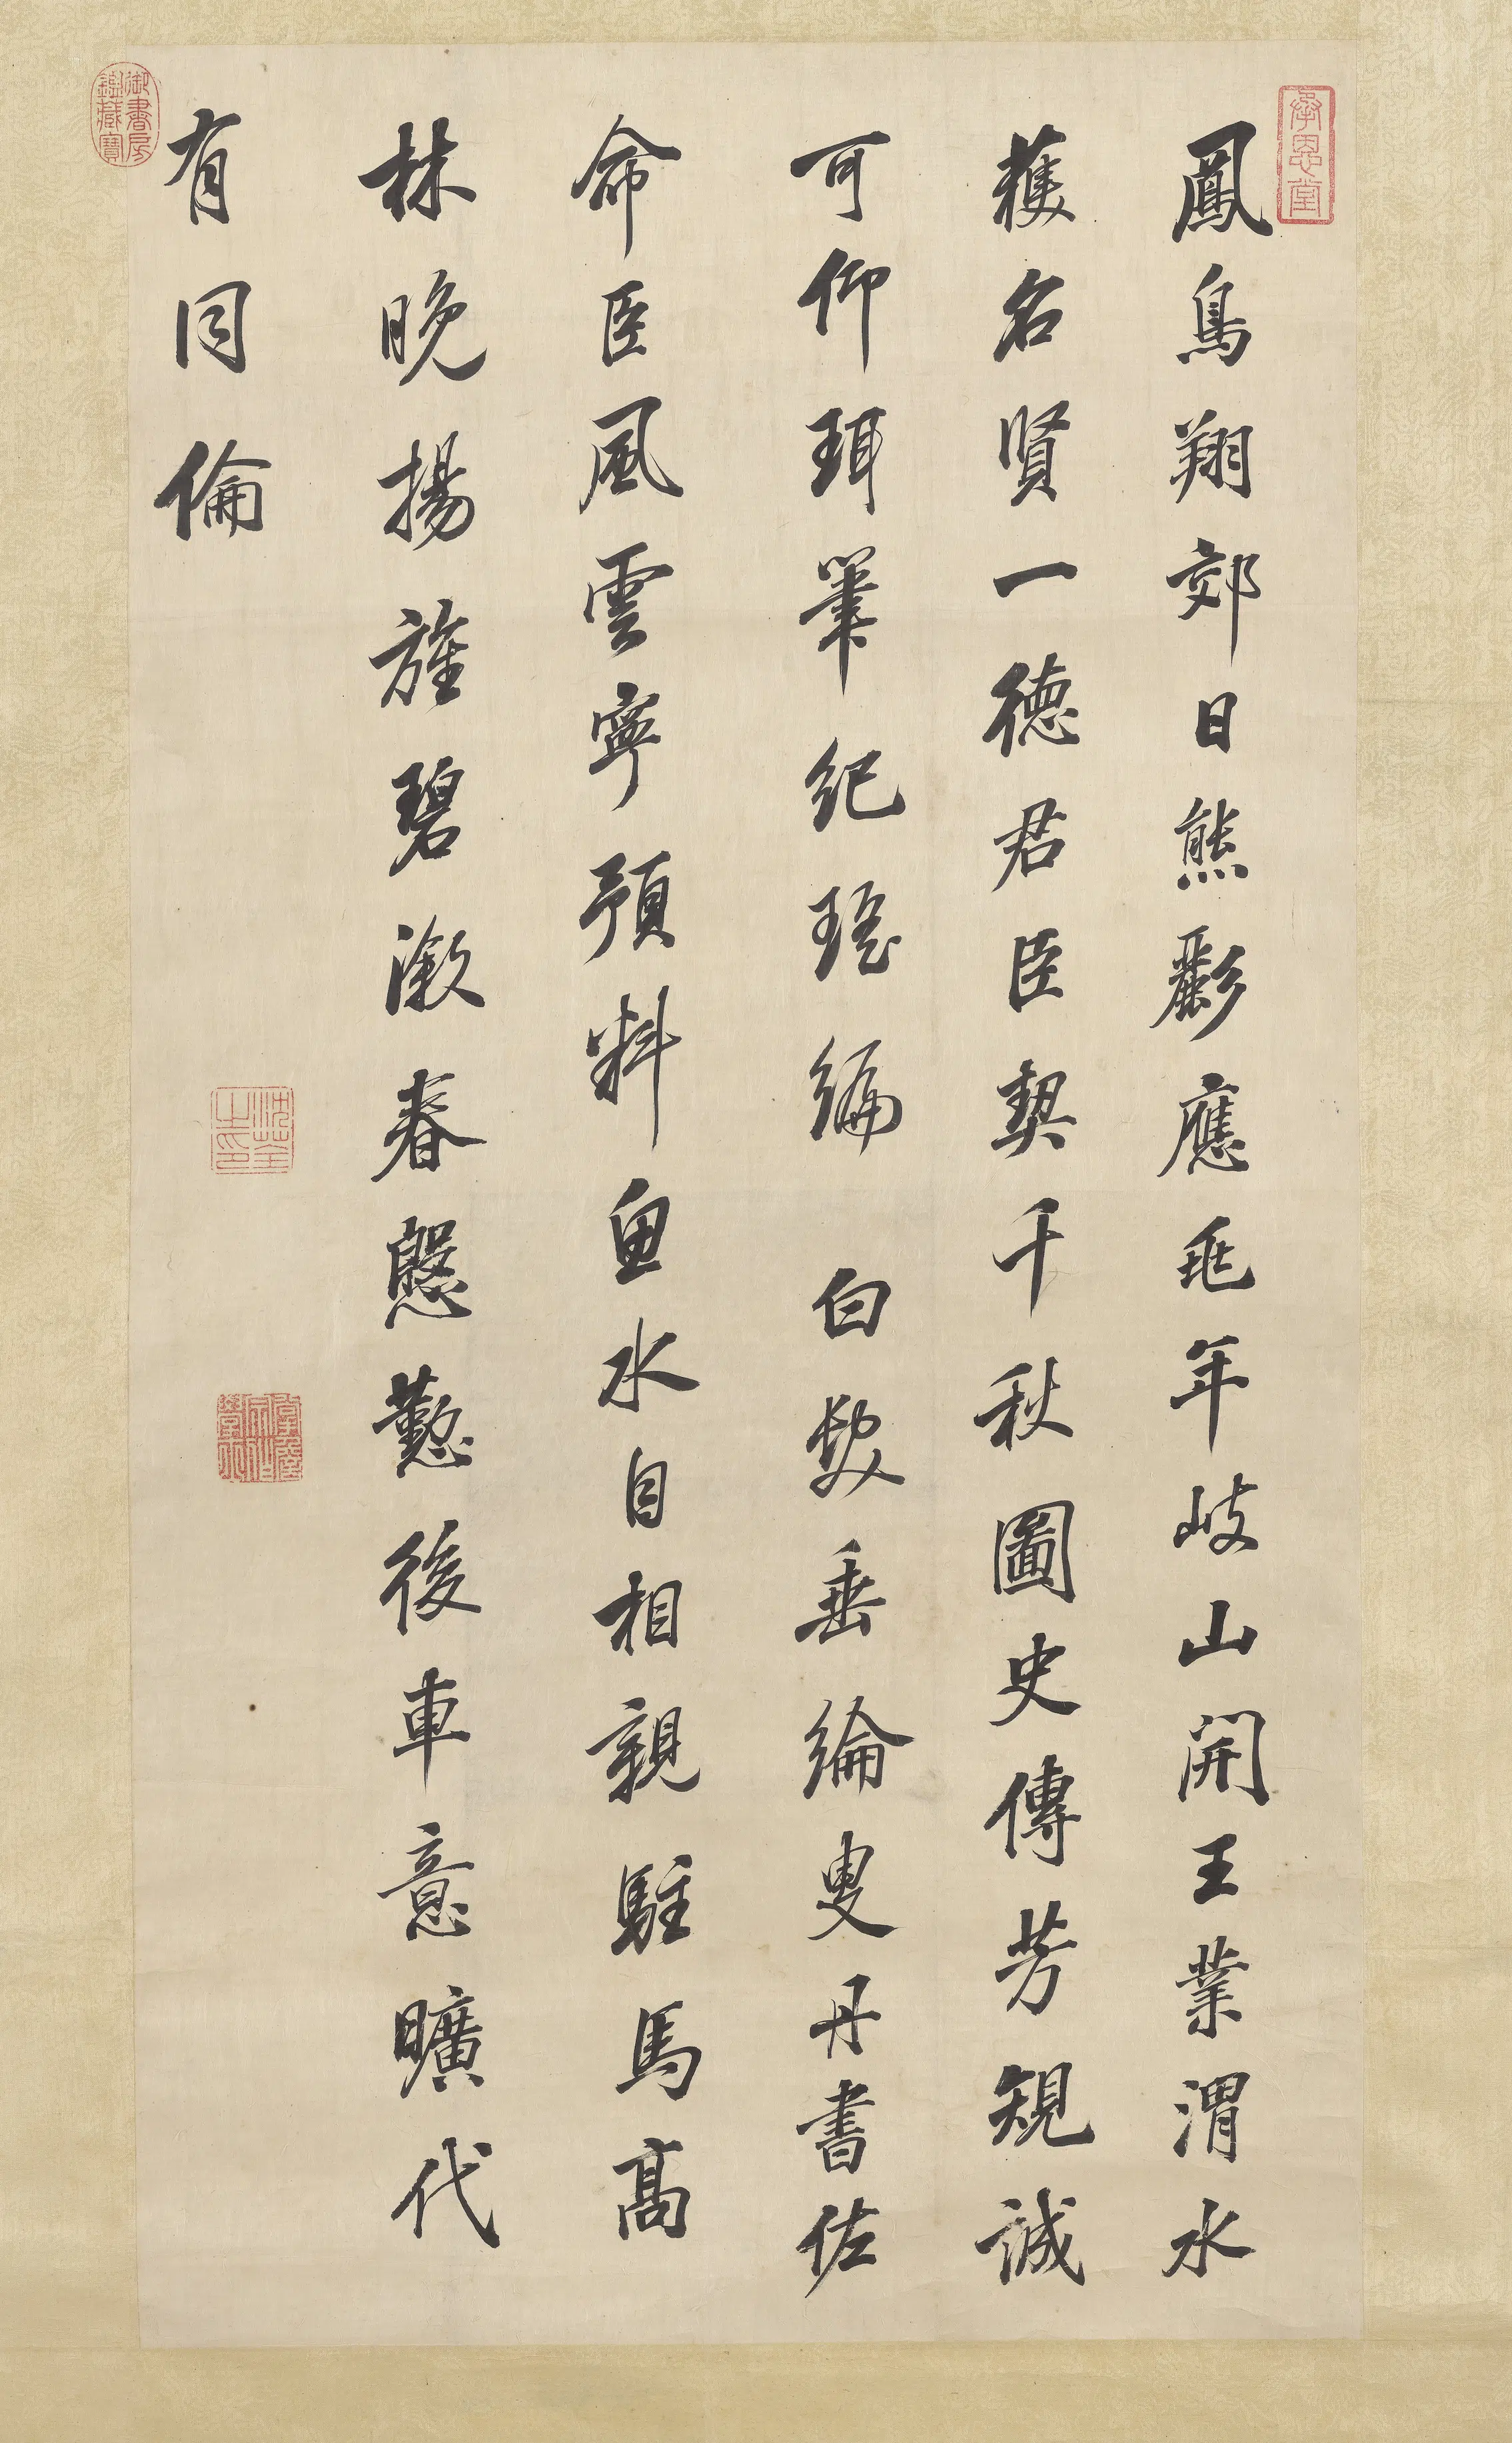 承恩堂
鳳鳥翔郊日熊彲應兆年岐山開王業渭水
獲名賢一德君臣契千秋圖史傳芳規誠
可仰珥筆紀瑤編 白髮垂綸叟丹書佐
命臣風雲寧預料魚水自相親駐馬高
林晚揚旌碧漵春慇懃後車意曠代
有同倫
沈荃之印
御書房鑑藏寶